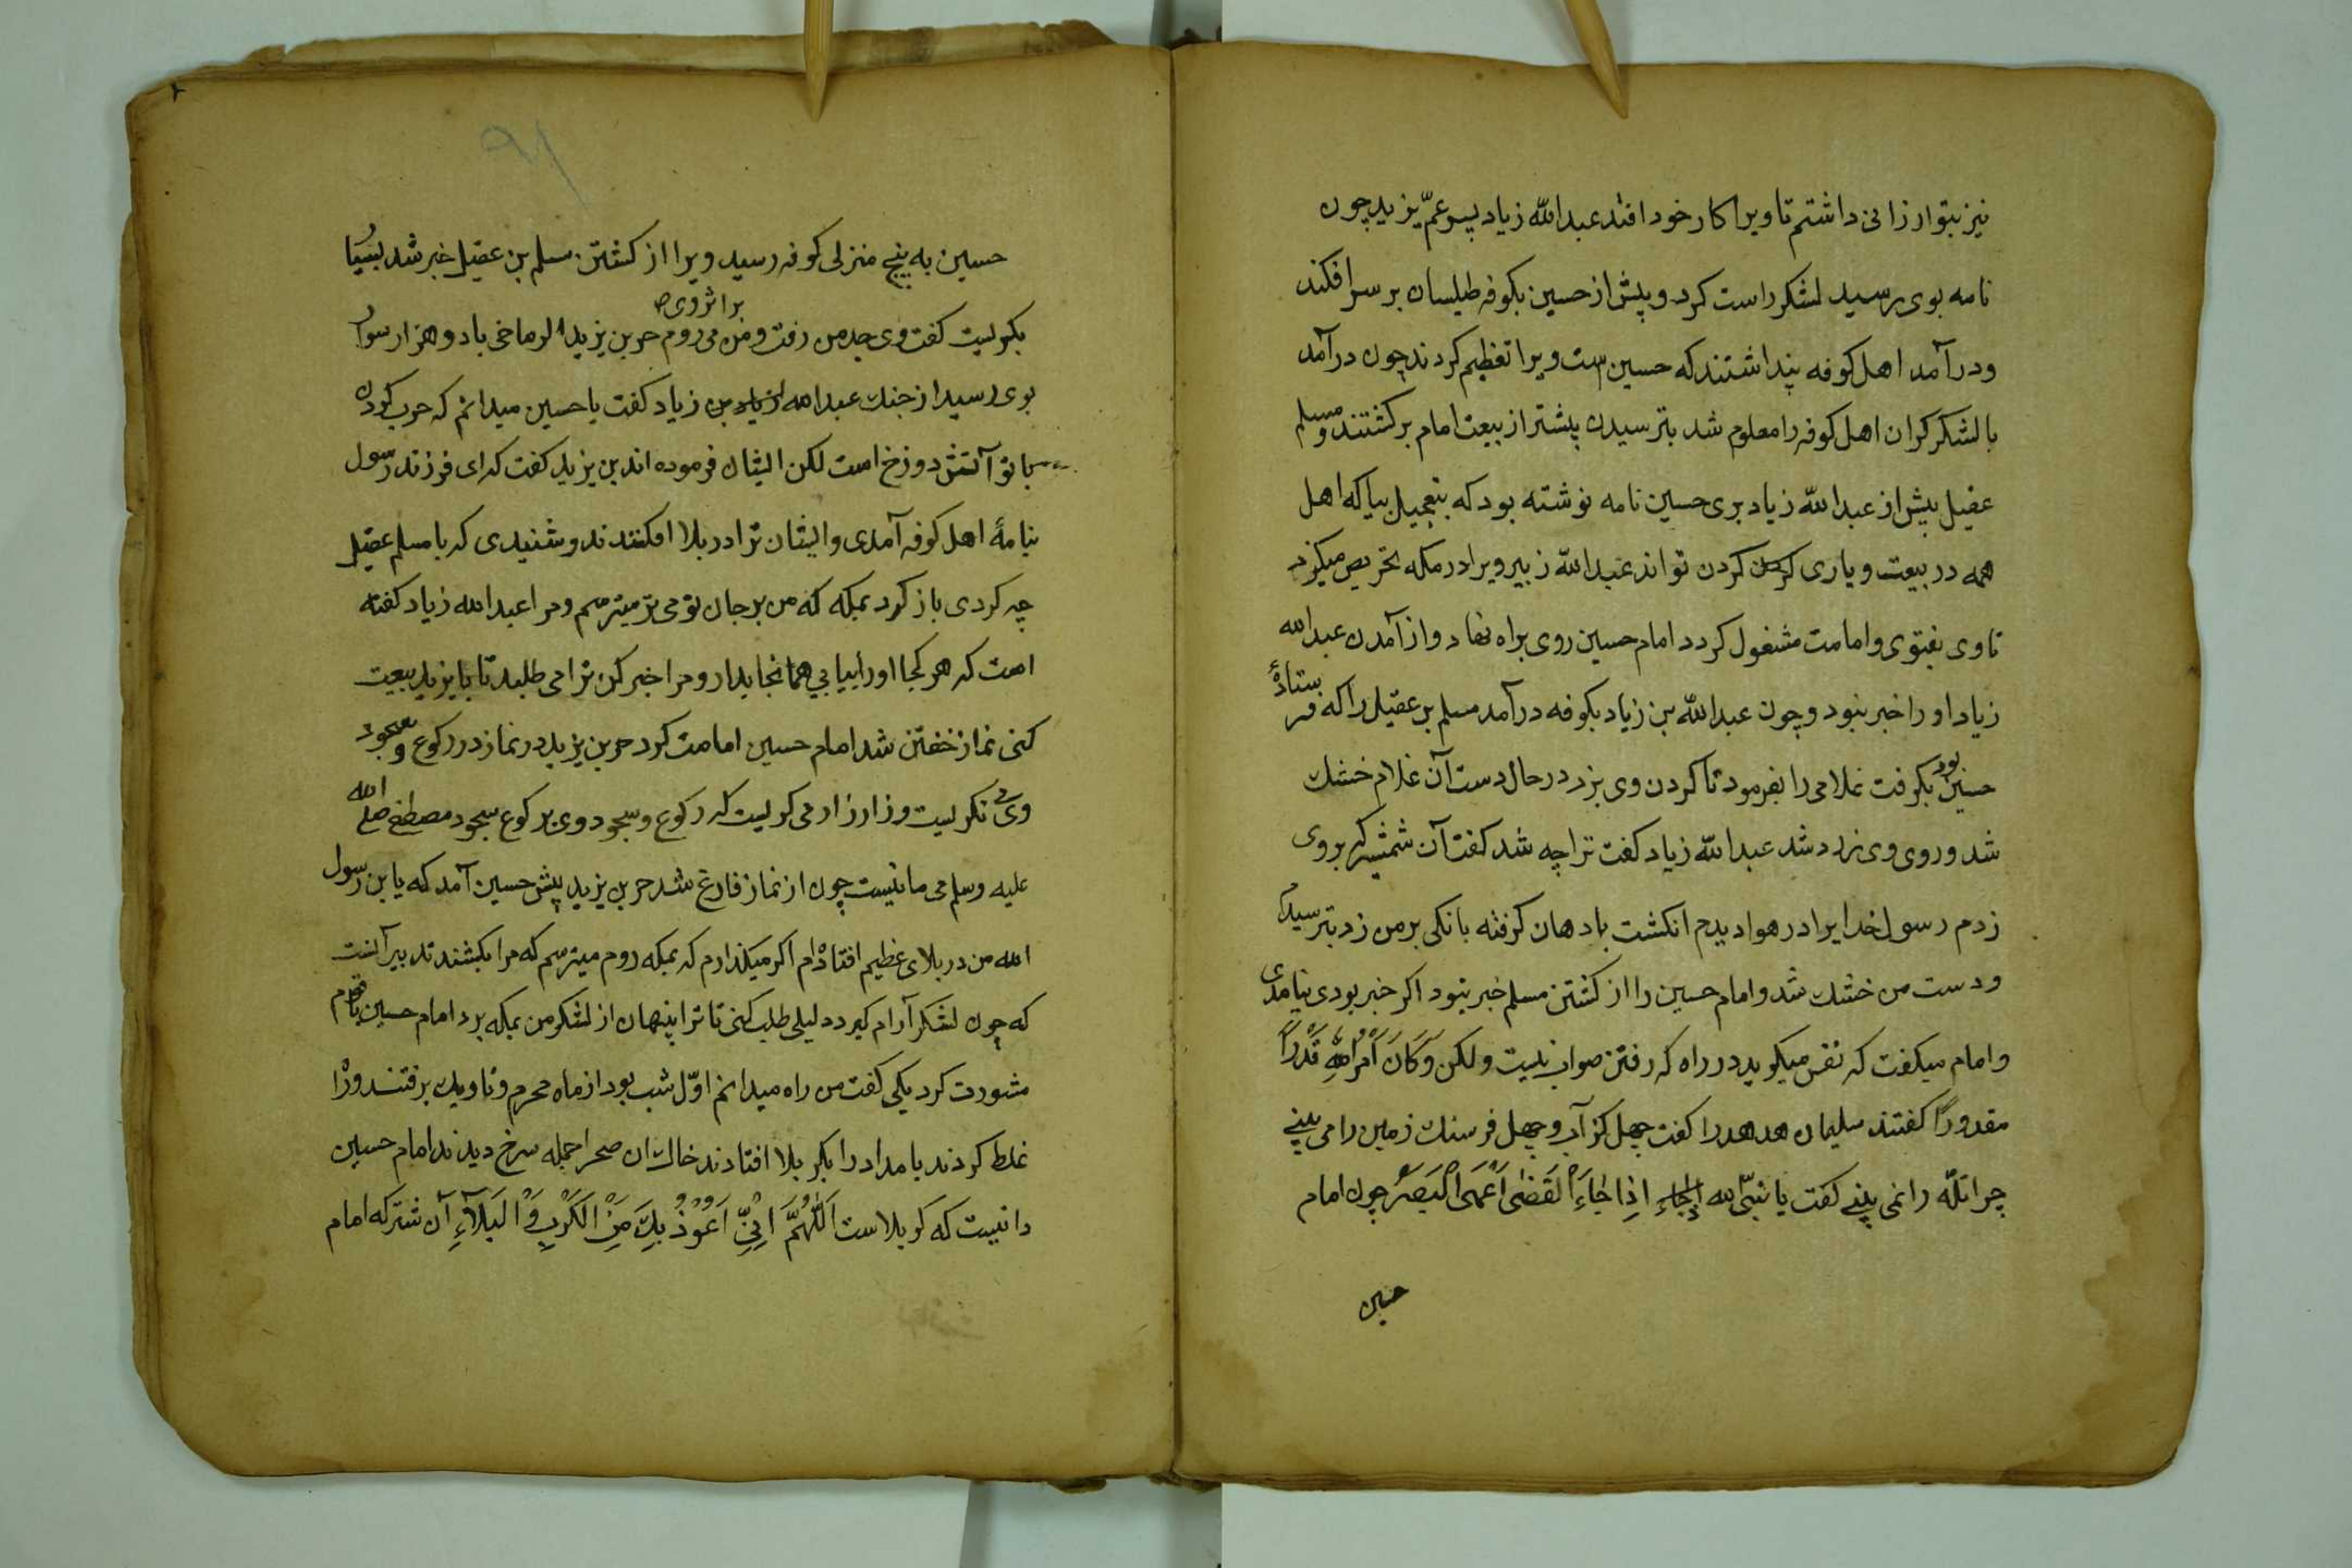 نیز بتوارزانی داشتم تا ویرا کار خود افتد عبدالله زیاد پسر عمّ یزید چون
نامه بوی رسید لشکر راست کرد و پیش از حسین بکوفه طیلسان بر سر افکند
و درآمد اهل کوفه پنداشتند که حسین ست ویرا تعظیم کردند چون درآمد
با لشکر کران اهل کوفه را معلوم شد بترسیدن پیشتر از بیعت امام برکشتند و مسلم
عقیل پیش از عبدالله زیاد بری حسین نامه نوشته بود که بتعجیل بیا که اهل
همه در بیعت و یاری کردن تواند عبدالله زبیر ویرا در مکه تحریص میکرد
تا وی بفتوی و امامت مشغول کردد امام حسین روی براه نهاد و از آمدن عبدالله
زیاد او را خبر نبود و چون عبدالله بن زیاد بکوفه درآمد مسلم بن عقیل را که فرستادهٔ
حسین بود بکرفت غلامی را بفرمود تا کردن وی بزد در حال دست آن غلام خشک
شد و روی وی زرد شد عبدالله زیاد کفت ترا چه شد کفت آن شمشیر که بروی
زدم رسول خدایرا در هوا دیدم انکشت بادهان کرفته بانکی بر من زد بترسیدم
و دست من خشک شد و امام حسین را از کشتن مسلم خبر نبود اکر خبر بودی نیامدی
و امام میکفت که نفس میکوید در راه که رفتن صواب نیست ولکن وَكَانَ اَمْرُ اللّٰهِ قَدَراً
مقدوراً کفتند سلیمان هدهد را کفت چهل کز آب و چهل فرسنک زمین را می بینے
چرا تله را نمی بینے کفت یا نبیّ الله اِذا جاءَ الْقَضٰی اَعْمَی الْبَصَرُ چون امام
حسین
حسین به پنج منزلی کوفه رسید ویرا از کشتن مسلم بن عقیل خبر شد بسیار
بر اثر وی
بکریست کفت وی جد من رفت و من می روم حر بن یزید الرماخی باد و هزار سوار
بوی رسید از جنک عبدالله بن زیاد کفت یا حسین میدانم که حرب کردن
با تو آتش دوزخ است لکن ایشان فرموده اند بن یزید کفت که ای فرزند رسول
بنامهٔ اهل کوفه آمدی و ایشان ترا در بلا افکنند و شنیدی که با مسلم عقیل
چه کردی باز کرد بمکه که من بر جان تو می ترسم و مرا عبدالله زیاد کفته
است که هر کجا او را بیابي همانجا بدار و مرا خبر کن ترا می طلبد تا با یزید بیعت
کنی نماز خفتن شد امام حسین امامت کرد حر بن یزید در نماز در رکوع و سجود
وی می نکریست و زار زار می کریست که رکوع و سجود وی بر کوع سجود مصطفی صلی الله
علیه وسلم می مانیست چون از نماز فارغ شد حر بن یزید پیش حسین آمد که یا بن رسول
الله من در بلای عظیم افتاده‌ام اکر میکذارم که بمکه روم میترسم که مرا بکشند تدبیر آنست
که چون لشکر آرام کیرد دلیلی طلب کنی تا ترا پنهان از لشکر من بمکه برد امام حسین با قوم
مشورت کرد یکی کفت من راه میدانم اوّل شب بود از ماه محرم و تاریک برفتند و راه
غلط کردند بامداد را بکربلا افتادند خاک ان صحرا جمله سرخ دیدند امام حسین
دانست که کربلاست اَللّٰهُمَّ اِنِّی اَعُوْذُ بِكَ مِنَ الْكَرْبِ وَ الْبَلآءِ آن شتر که امام